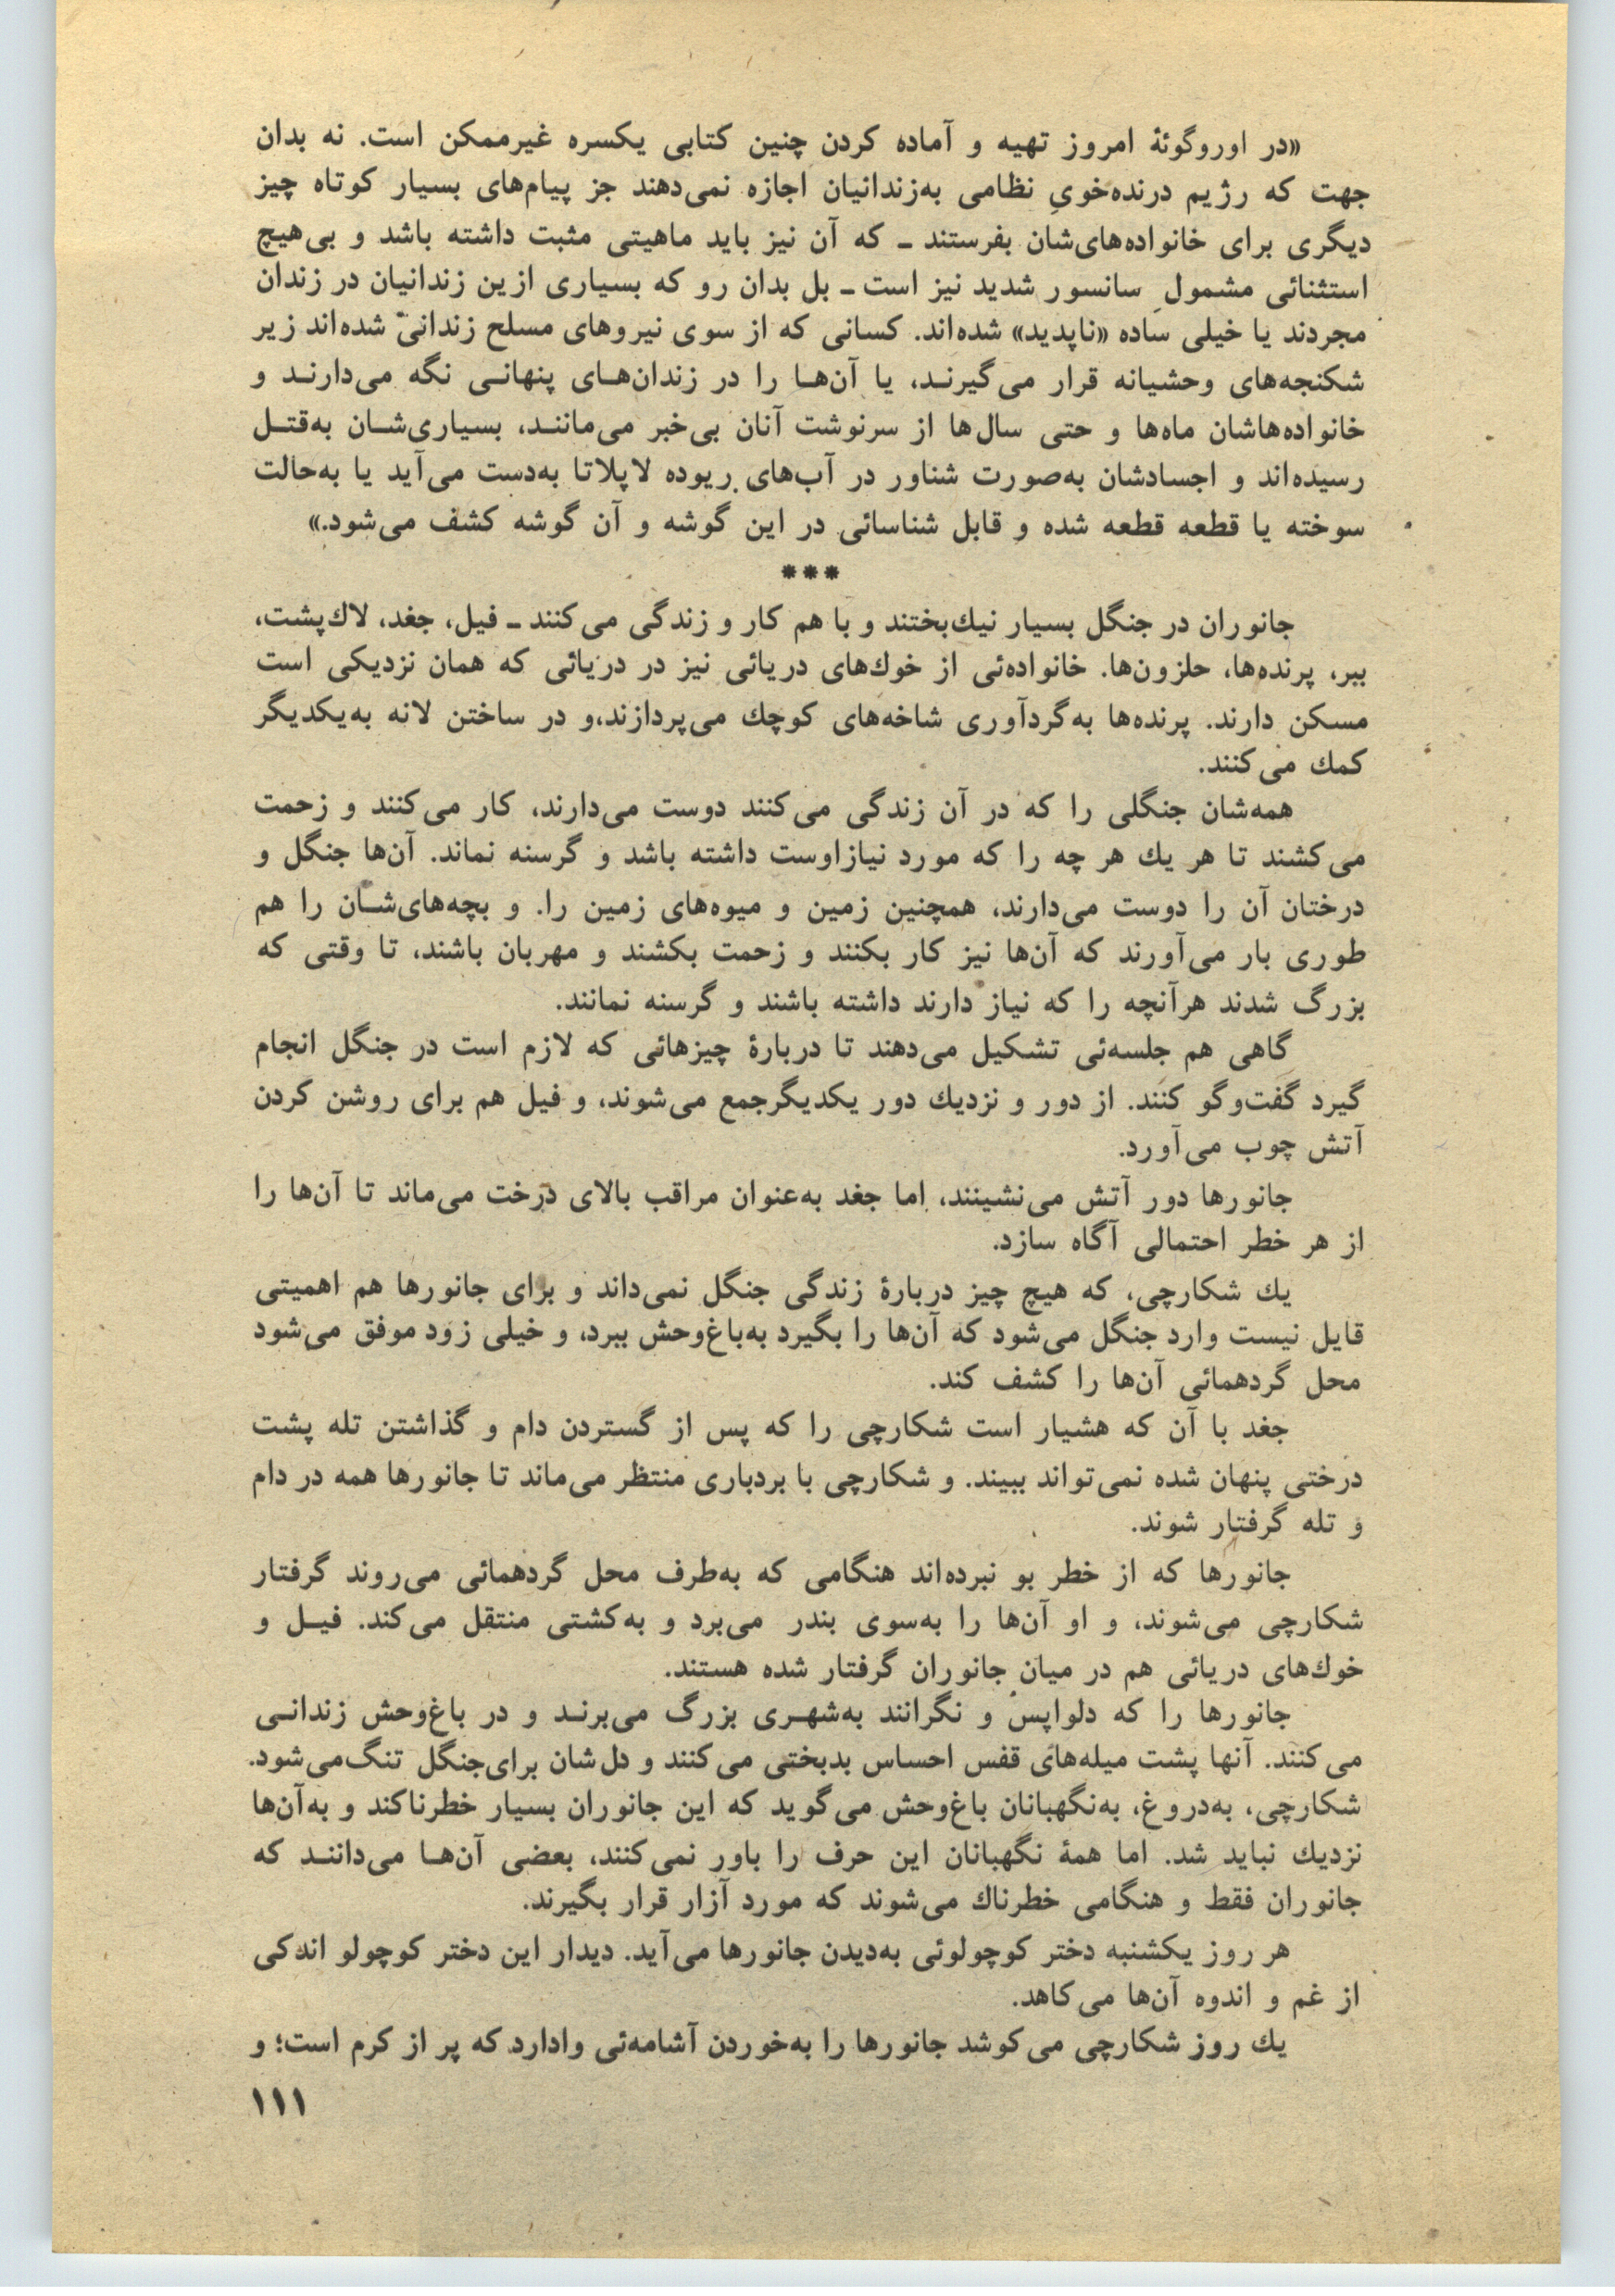 «در اوروگوئهٔ امروز تهیه و آماده کردن چنین کتابی یکسره غیرممکن است. نه بدان
جهت که رژیم درنده‌خویِ نظامی به‌زندانیان اجازه نمی‌دهند جز پیام‌های بسیار کوتاه چیز
دیگری برای خانواده‌های‌شان بفرستند ـ که آن نیز باید ماهیتی مثبت داشته باشد و بی‌هیچ
استثنائی مشمول سانسور شدید نیز است ـ بل بدان رو که بسیاری ازین زندانیان در زندان
مجردند یا خیلی ساده «ناپدید» شده‌اند. کسانی که از سوی نیروهای مسلح زندانی شده‌اند زیر
شکنجه‌های وحشیانه قرار می‌گیرنـد، یا آن‌هـا را در زندان‌هـای پنهانـی نگه می‌دارنـد و
خانواده‌هاشان ماه‌ها و حتی سال‌ها از سرنوشت آنان بی‌خبر می‌ماننـد، بسیاری‌شـان به‌قتـل
رسیده‌اند و اجسادشان به‌صورت شناور در آب‌های ریوده لاپلاتا به‌دست می‌آید یا به‌حالت
سوخته یا قطعه قطعه شده و قابل شناسائی در این گوشه و آن گوشه کشف می‌شود.»
***
جانوران در جنگل بسیار نیك‌بختند و با هم کار و زندگی می‌کنند ـ فیل، جغد، لاك‌پشت،
ببر، پرنده‌ها، حلزون‌ها. خانواده‌ئی از خوك‌های دریائی نیز در دریائی که همان نزدیکی است
مسکن دارند. پرنده‌ها به‌گردآوری شاخه‌های کوچك می‌پردازند،و در ساختن لانه به‌یکدیگر
کمك می‌کنند.
همه‌شان جنگلی را که در آن زندگی می‌کنند دوست می‌دارند، کار می‌کنند و زحمت
می‌کشند تا هر یك هر چه را که مورد نیازاوست داشته باشد و گرسنه نماند. آن‌ها جنگل و
درختان آن را دوست می‌دارند، همچنین زمین و میوه‌های زمین را. و بچه‌های‌شـان را هم
طوری بار می‌آورند که آن‌ها نیز کار بکنند و زحمت بکشند و مهربان باشند، تا وقتی که
بزرگ شدند هرآنچه را که نیاز دارند داشته باشند و گرسنه نمانند.
گاهی هم جلسه‌ئی تشکیل می‌دهند تا دربارهٔ چیزهائی که لازم است در جنگل انجام
گیرد گفت‌وگو کنند. از دور و نزدیك دور یکدیگرجمع می‌شوند، و فیل هم برای روشن کردن
آتش چوب می‌آورد.
جانورها دور آتش می‌نشینند، اما جغد به‌عنوان مراقب بالای درخت می‌ماند تا آن‌ها را
از هر خطر احتمالی آگاه سازد.
یك شکارچی، که هیچ چیز دربارهٔ زندگی جنگل نمی‌داند و برای جانورها هم اهمیتی
قایل نیست وارد جنگل می‌شود که آن‌ها را بگیرد به‌باغ‌وحش ببرد، و خیلی زود موفق می‌شود
محل گردهمائی آن‌ها را کشف کند.
جغد با آن که هشیار است شکارچی را که پس از گستردن دام و گذاشتن تله پشت
درختی پنهان شده نمی‌تواند ببیند. و شکارچی با بردباری منتظر می‌ماند تا جانورها همه در دام
و تله گرفتار شوند.
جانورها که از خطر بو نبرده‌اند هنگامی که به‌طرف محل گردهمائی می‌روند گرفتار
شکارچی می‌شوند، و او آن‌ها را به‌سوی بندر می‌برد و به‌کشتی منتقل می‌کند. فیـل و
خوك‌های دریائی هم در میان جانوران گرفتار شده هستند.
جانورها را که دلواپس و نگرانند به‌شهـری بزرگ می‌برنـد و در باغ‌وحش زندانـی
می‌کنند. آنها پشت میله‌های قفس احساس بدبختی می‌کنند و دل‌شان برای‌جنگل تنگ‌می‌شود.
شکارچی، به‌دروغ، به‌نگهبانان باغ‌وحش می‌گوید که این جانوران بسیار خطرناکند و به‌آن‌ها
نزدیك نباید شد. اما همهٔ نگهبانان این حرف را باور نمی‌کنند، بعضی آن‌هـا می‌داننـد که
جانوران فقط و هنگامی خطرناك می‌شوند که مورد آزار قرار بگیرند.
هر روز یکشنبه دختر کوچولوئی به‌دیدن جانورها می‌آید. دیدار این دختر کوچولو اندکی
از غم و اندوه آن‌ها می‌کاهد.
یك روز شکارچی می‌کوشد جانورها را به‌خوردن آشامه‌ئی وادارد که پر از کرم است؛ و
۱۱۱